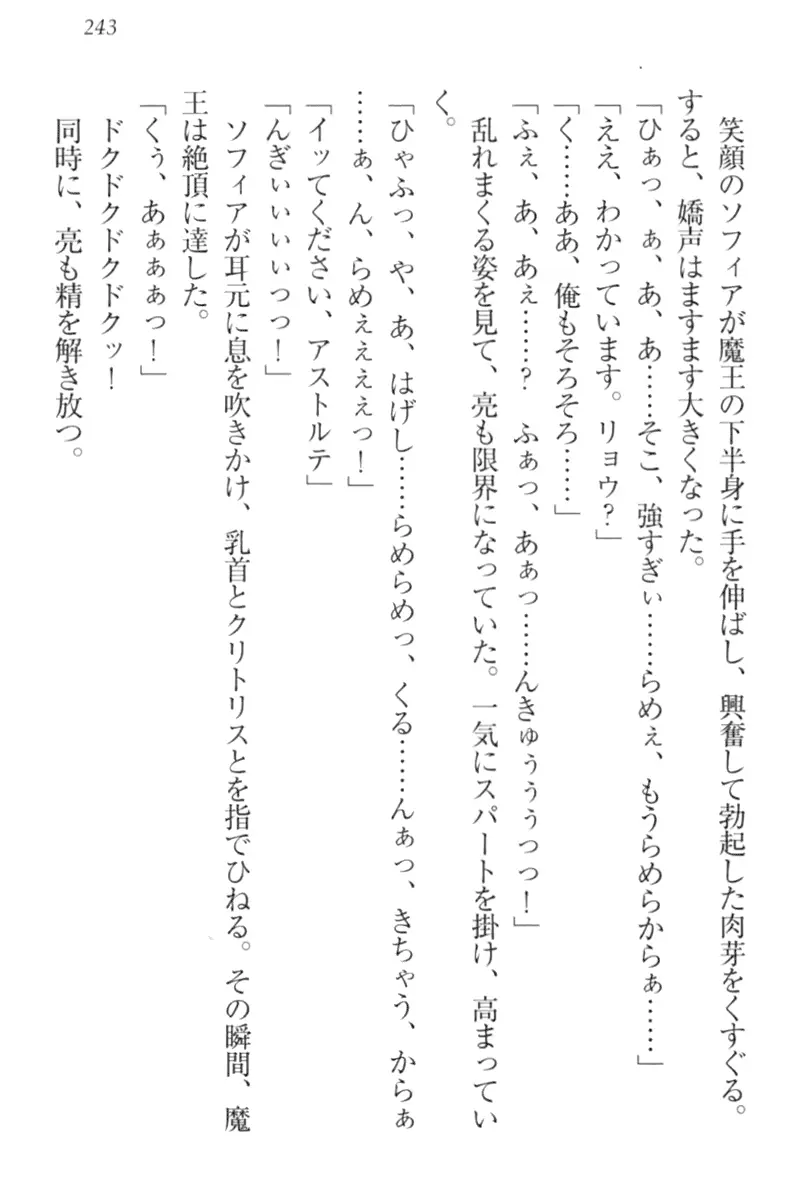 243
笑顔のソフィアが魔王の下半身に手を伸ばし、興奮して勃起した肉芽をくすぐる。
すると、嬌声はますます大きくなった。
「ひぁっ、ぁ、あ、あ……そこ、強すぎぃ……らめぇ、もうらめらからぁ……」
「ええ、わかっています。リョウ？」
「く……ああ、俺もそろそろ……」
「ふぇ、あ、あぇ……？　ふぁっ、あぁっ……んきゅぅぅぅっっ！」
乱れまくる姿を見て、亮も限界になっていた。一気にスパートを掛け、高まってい
く。
「ひゃふっ、や、あ、はげし……らめらめっ、くる……んぁっ、きちゃう、からぁ
……ぁ、ん、らめぇぇぇぇっ！」
「イッてください、アストルテ」
「んぎぃぃぃぃっっ！」
ソフィアが耳元に息を吹きかけ、乳首とクリトリスとを指でひねる。その瞬間、魔
王は絶頂に達した。
「くぅ、あぁぁぁっ！」
ドクドクドクドクッ！
同時に、亮も精を解き放つ。